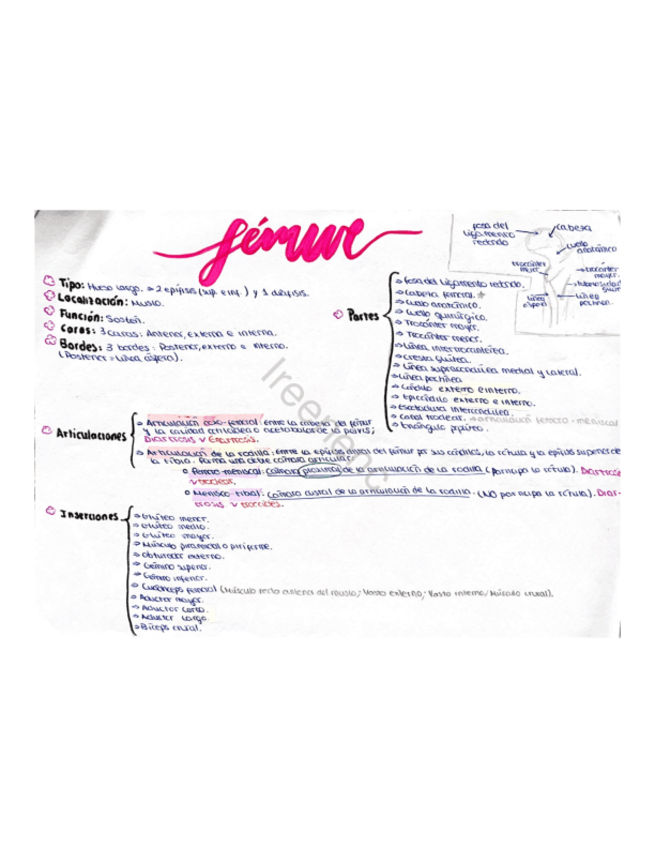 fémur
fosa del
ligamento
redondo
cabeza
cuello
anatómico
trocánter
mayor
trocánter
menor
línea
áspera
línea
pectínea
Tipo: Hueso largo. → 2 epífisis (sup. e inf.) y 1 diáfisis.
Localización: Muslo.
Función: Sostén.
Caras: 3 caras: Anterior, externa e interna.
Bordes: 3 bordes: Posterior, externo e interno.
(Posterior = línea áspera).
Partes
→ fosa del ligamento redondo.
→ Cabeza femoral.
→ Cuello anatómico.
→ Cuello quirúrgico.
→ Trocánter mayor.
→ Trocánter menor.
→ Línea intertrocantérea.
→ Cresta glútea.
→ Línea supracondílea medial y lateral.
→ Línea pectínea
→ Cóndilo externo e interno.
→ Epicóndilo externo e interno.
→ Escotadura intercondílea.
→ Canal troclear. → articulación fémoro-meniscal
→ triángulo poplíteo.
Articulaciones
→ Articulación coxo-femoral: entre la cabeza del fémur
y la cavidad cotiloidea o acetabular de la pelvis;
Diartrosis y Enartrosis.
→ Articulación de la rodilla: entre la epífisis distal del fémur por sus cóndilos, la rótula y la epífisis superior de
la tibia. Forma una doble cámara articular
Fémoro-meniscal: Cámara proximal de la articulación de la rodilla (participa la rótula).
y troclear.
Menisco-tibial: Cámara distal de la articulación de la rodilla. (NO participa la rótula). Diar-
trosis y
Inserciones
→ Glúteo menor.
→ Glúteo medio.
→ Glúteo mayor.
→ Músculo piramidal o piriforme.
→ Obturador externo.
→ Gémino superior.
→ Gémino inferior.
→ Cuádriceps femoral (Músculo recto anterior del muslo; Vasto externo; Vasto interno; Músculo crural).
→ Aductor mayor.
→ Aductor corto.
→ Aductor largo.
→ Bíceps crural.
Ireenen.c